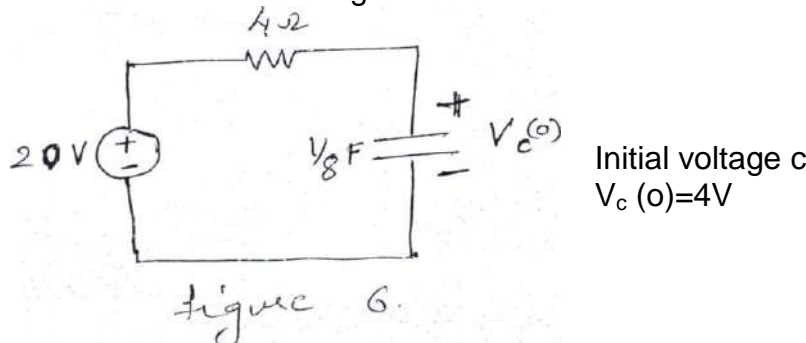 4Ω
20V
+
-
1/8 F
+
Vc(o)
-
Initial voltage c
Vc (o)=4V
figure 6.